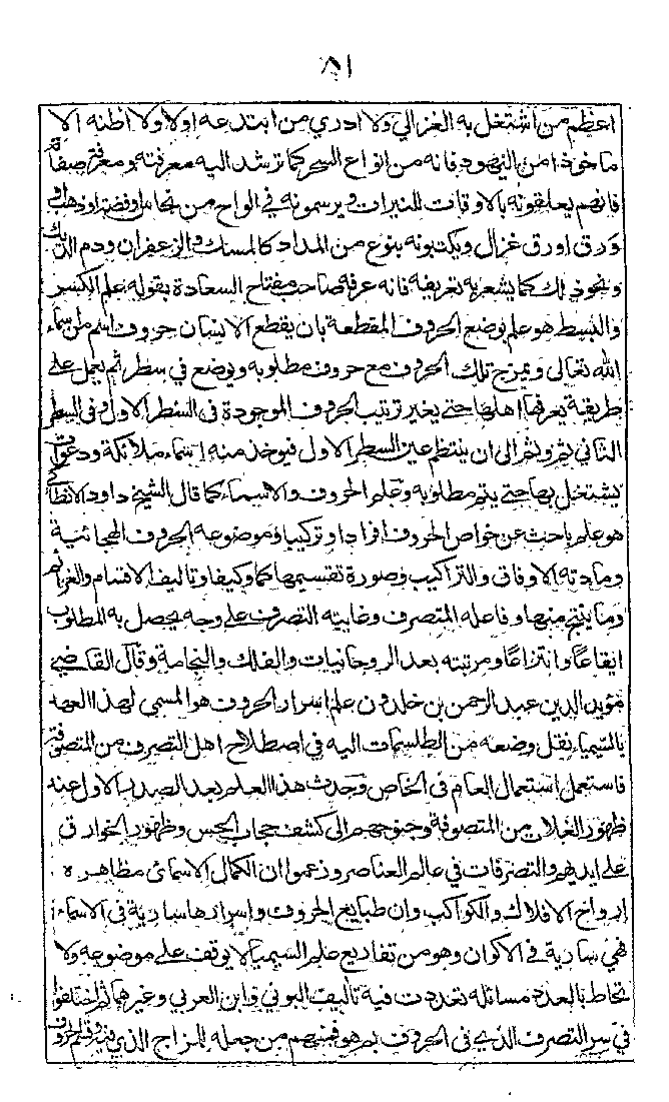 ٨١
اعظم من اشتغل به الغزالي ولا ادري من ابتدعه اولا ولا اظنه الا
ماخوذا من اليهود فانه من انواع السحر كما ترشد اليه معرفته ومعرفة صفاته
فانهم يعلقونه بالاوقات للنيرات ويرسمونه في الواح من نحاس او فضة او ذهب او
ورق او رق غزال ويكتبونه بنوع من المداد كالمسك والزعفران ودم الديك
ونحو ذلك كما يشعر به تعريفه فانه عرفه صاحب مفتاح السعادة بقوله علم الكسر
والبسط هو علم بوضع الحروف المقطعة بان يقطع الانسان حروف اسم من اسماء
الله تعالى ويمزج تلك الحروف مع حروف مطلوبه ويوضع في سطر ثم يعمل على
طريقة يعرفها اهلها حتى يغير ترتيب الحروف الموجودة في السطر الاول وفي السطر
الثاني ثم وثم الى ان ينتظم عين السطر الاول فيوخذ منه اسماء ملائكة ودعوات
يشتغل بها حتى يتم مطلوبه وعلم الحروف والاسماء كما قال الشيخ داود الانطاكي
هو علم باحث عن خواص الحروف افرادا وتركيبا وموضوعه الحروف الهجائية
ومادته الاوفاق والتراكيب وصورة تقسيمها كما وكيفا وتاليف الاقسام والعزائم
وما ينتج منها وفاعله المتصرف وغايته التصرف على وجه يحصل به المطلوب
ايقاعا وانتزاعا ومرتبته بعد الروحانيات والفلك والنجامة وقال القاضي
مؤيد الدين عبد الرحمن بن خلدون علم اسرار الحروف هو المسمى لهذا العهد
بالسيمياء نقل وضعه من الطلسمات اليه في اصطلاح اهل التصرف من المتصوفة
فاستعمل استعمال العام في الخاص وحدث هذا العلم بعد الصدر الاول عند
ظهور الغلاة من المتصوفة وجنوحهم الى كشف حجاب الحس وظهور الخوارق
على ايديهم والتصرفات في عالم العناصر وزعموا ان الكمال الاسمائي مظاهره
ارواح الافلاك والكواكب وان طبايع الحروف واسرارها سارية في الاسماء
فهي سارية في الاكوان وهو من تفاريع علم السيمياء لا يوقف على موضوعه ولا
تحاط بالعدد مسائله تعددت فيه تآليف البوني وابن العربي وغيرهما ثم اختلفوا
في سر التصرف الذي في الحروف بم هو فمنهم من جعله للمزاج الذي فيه وقسم الحروف